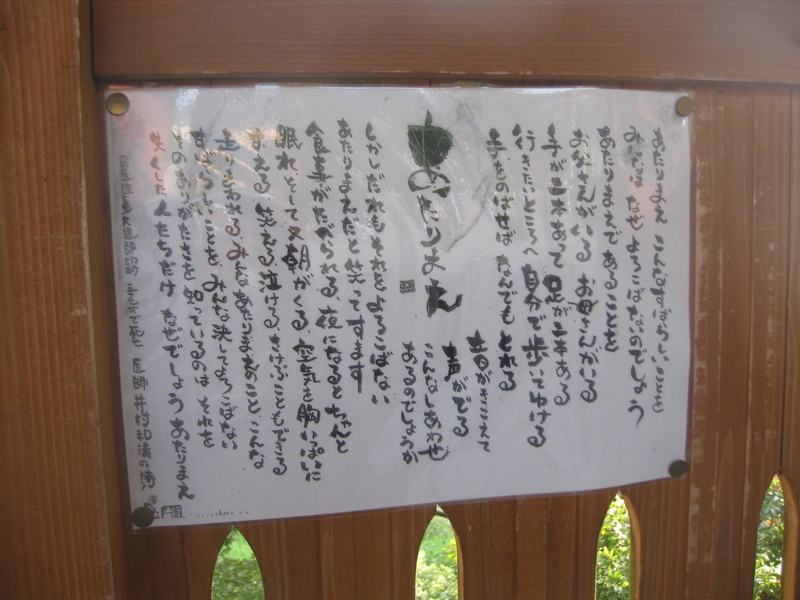 あたりまえ こんなすばらしいことを
みんなはなぜよろこばないのでしょう
あたりまえであることを
お父さんがいる お母さんがいる
手が二本あって 足が二本ある
行きたいところへ自分で歩いてゆける
手をのばせばなんでもとれる
音がきこえて
声がでる
こんなしあわせ
あるのでしょうか
あたりまえ
しかしだれもそれをよろこばない
あたりまえだと笑ってすます
食事がたべられる、夜になるとちゃんと
眠れ、そして又朝がくる 空気を胸いっぱいに
すえる 笑える 泣ける さけぶこともできる
走りまわれる みんなあたりまえのこと こんな
すばらしいことを みんな決してよろこばない
そのありがたさを 知っているのは それを
失くした人たちだけ なぜでしょう あたりまえ
医師 井村和清の詩